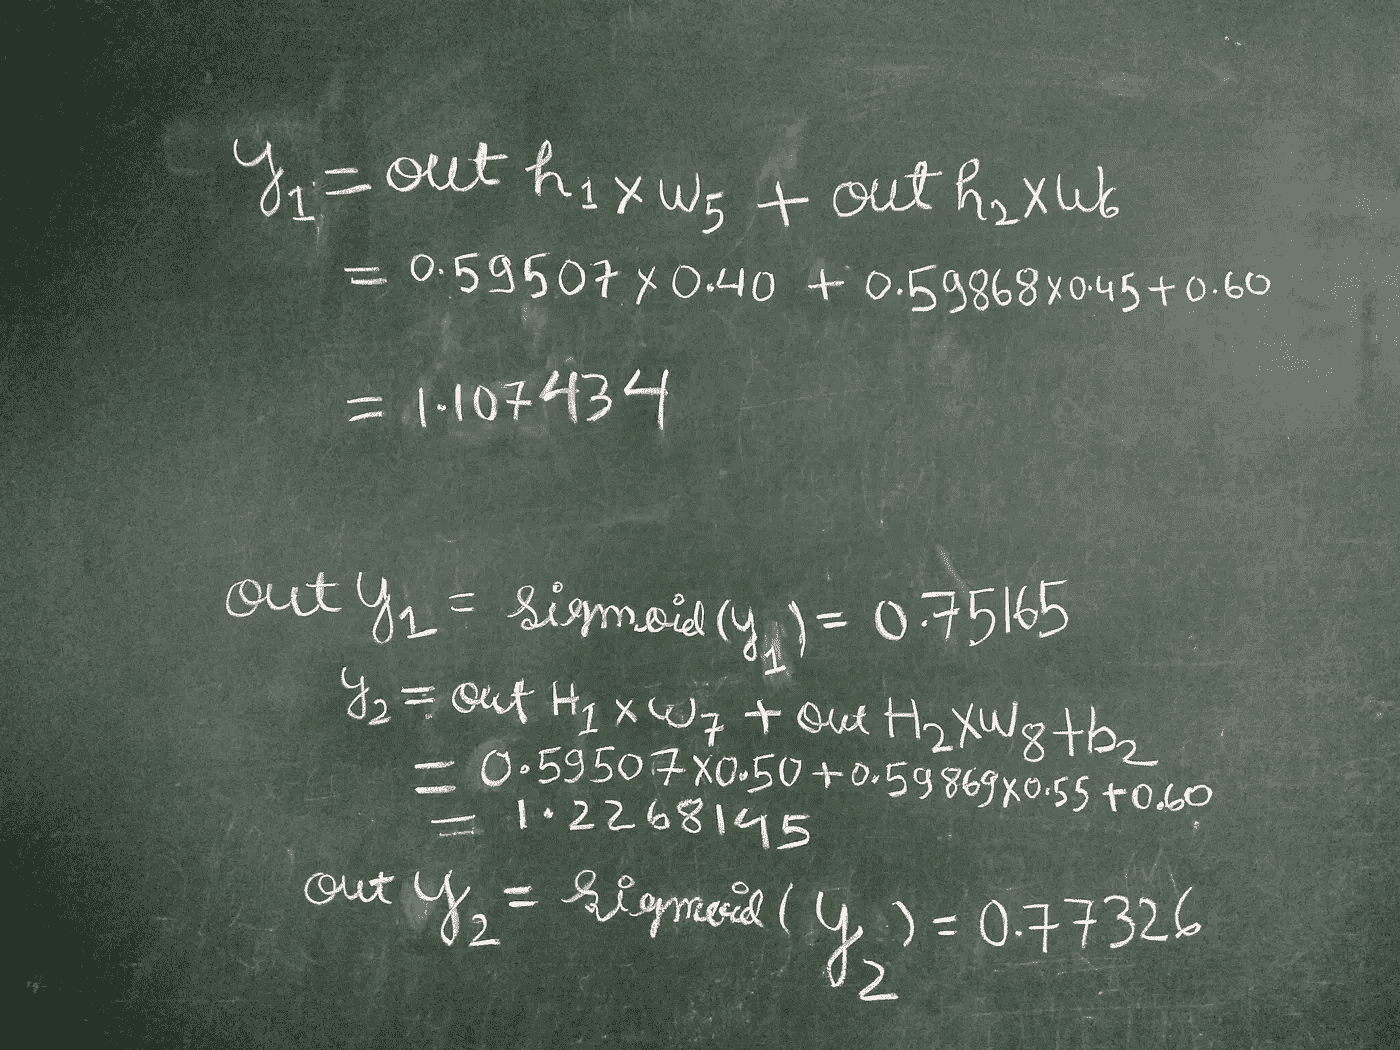 y₁ = out h₁ x w₅ + out h₂ x w₆
= 0.59507 x 0.40 + 0.59868 x 0.45 + 0.60
= 1.107434
out y₁ = sigmoid (y₁) = 0.75165
y₂ = out H₁ x w₇ + out H₂ x w₈ + b₂
= 0.59507 x 0.50 + 0.59869 x 0.55 + 0.60
= 1.2268145
out y₂ = sigmoid ( y₂ ) = 0.77326